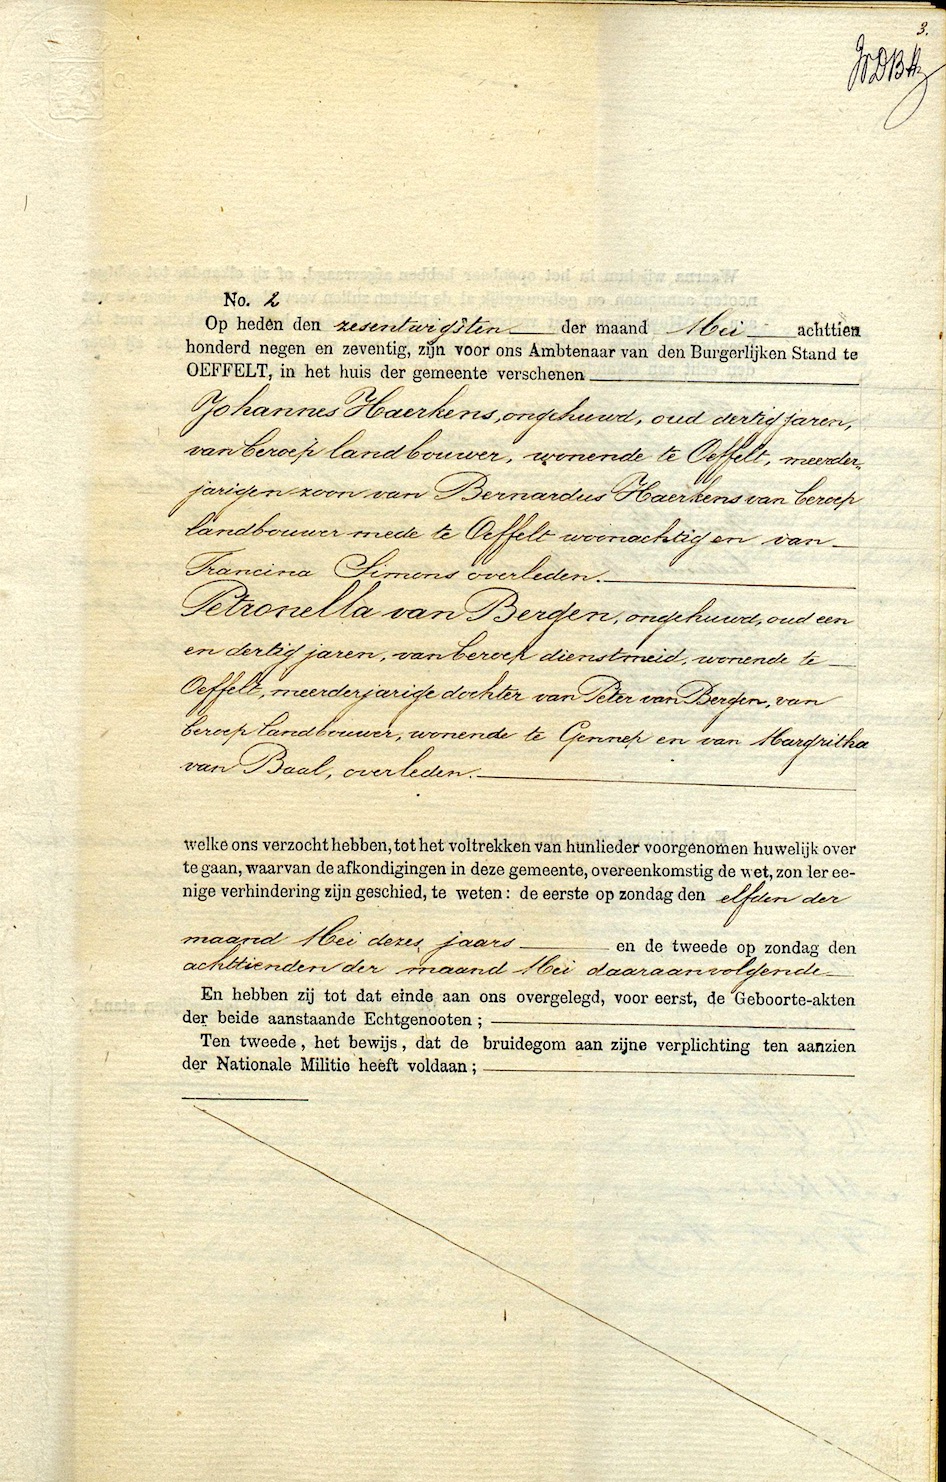 3.
No. 2
Op heden den zesentwigsten der maand Mei achttien
honderd negen en zeventig, zijn voor ons Ambtenaar van den Burgerlijken Stand te
OEFFELT, in het huis der gemeente verschenen
Johannes Haerkens, ongehuwd, oud dertig jaren,
van beroep landbouwer, wonende te Oeffelt, meerder„
jarigen zoon van Bernardus Haerkens van beroep
landbouwer mede te Oeffelt woonachtig en van
Francina Simons overleden.
Petronella van Bergen, ongehuwd, oud een
en dertig jaren, van beroep dienstmeid, wonende te
Oeffelt, meerderjarige dochter van Peter van Bergen, van
beroep landbouwer, wonende te Gennep en van Margritha
van Baal, overleden.
welke ons verzocht hebben, tot het voltrekken van hunlieder voorgenomen huwelijk over
te gaan, waarvan de afkondigingen in deze gemeente, overeenkomstig de wet, zonder ee-
nige verhindering zijn geschied, te weten: de eerste op zondag den elfden der
maand Mei dezes jaars en de tweede op zondag den
achttienden der maand Mei daaraanvolgende
En hebben zij tot dat einde aan ons overgelegd, voor eerst, de Geboorte-akten
der beide aanstaande Echtgenooten;
Ten tweede, het bewijs, dat de bruidegom aan zijne verplichting ten aanzien
der Nationale Militie heeft voldaan;